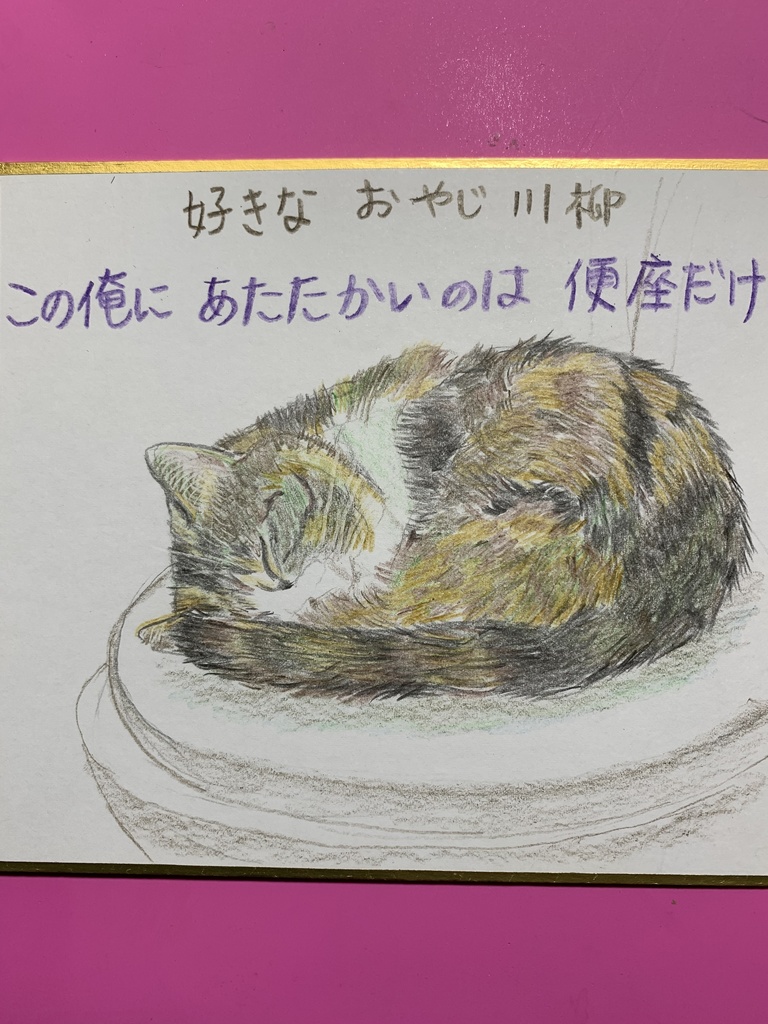 好きな おやじ川柳
この俺に あたたかいのは 便座だけ